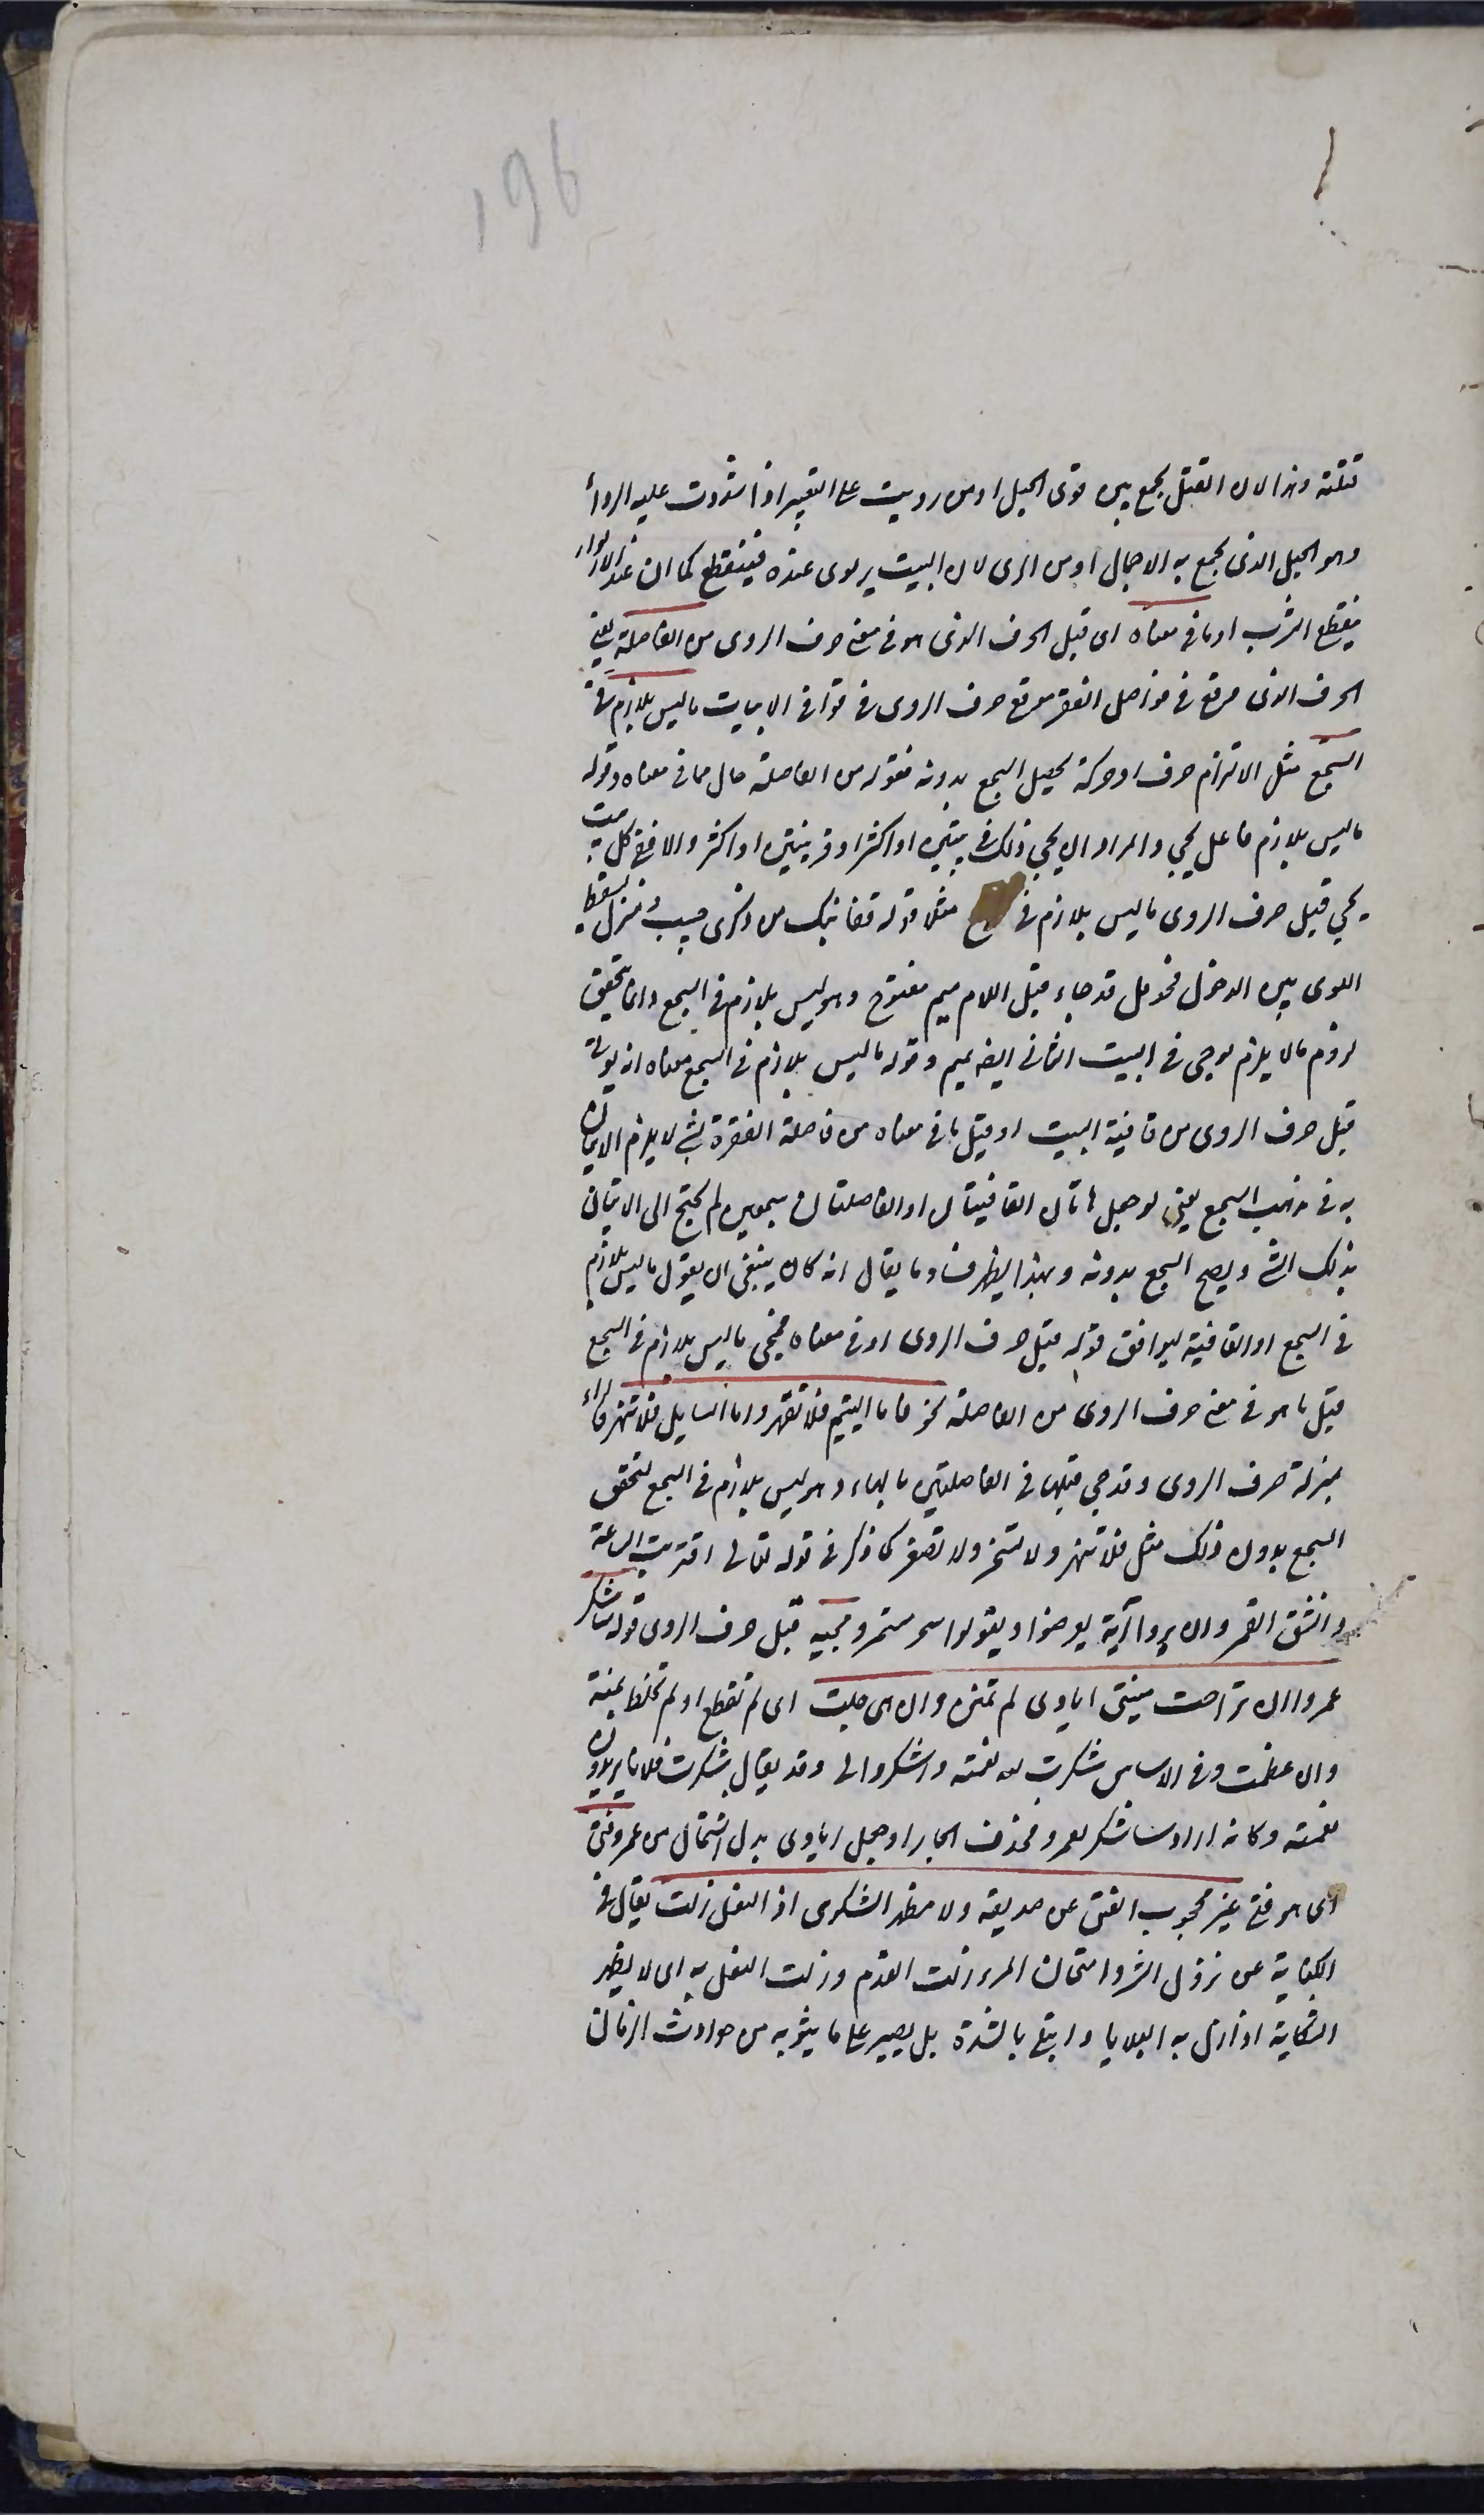 196
فتلته وهذا لان الفتل يجمع بين قوى الحبل او من رويت على البعير اذا شددت عليه الرواء
وهو الحبل الذى يجمع به الاحمال او من الرى لان البيت يرتوى عنده فينقطع كما ان عند الارتواء
ينقطع الشرب او ما فى معناه اى قبل الحرف الذى هو فى معنى حرف الروى من الفاصلة يعنى
الحرف الذى وقع فى فواصل الفقر موقع حرف الروى فى قوافى الابيات ما ليس بلازم فى
السجع مثل الالتزام حرف او حركة يحصل السجع بدونه فقوله من الفاصلة حال مما فى معناه وقوله
ما ليس بلازم فاعل يجئ والمراد ان يجئ ذلك فى بيتين او اكثر او قرينتين او اكثر والا ففى كل بيت
يجئ قبل حرف الروى ما ليس بلازم فى السجع مثلا قوله قفا نبك من ذكرى حبيب ومنزل بسقط
اللوى بين الدخول فحومل قد جاء قبل اللام ميم مفتوح وهو ليس بلازم فى السجع وانما يتحقق
لزوم ما لا يلزم لو جئ فى البيت الثانى ايضا بميم وقوله ما ليس بلازم فى السجع معناه ان يؤتى
قبل حرف الروى من قافية البيت او قبل ما فى معناه من فاصلة الفقرة بشئ لا يلزم الاتيان
به فى مذهب السجع يعنى لو جعل هاتان القافيتان او الفاصلتان سجعين لم يحتج الى الاتيان
بذلك الشئ ويصح السجع بدونه وبهذا يظهر فساد ما يقال انه كان ينبغى ان يقول ما ليس بلازم
فى السجع او القافية ليوافق قوله قبل حرف الروى او فى معناه فمجئ ما ليس بلازم فى السجع
قبل ما هو فى معنى حرف الروى من الفاصلة نحو فاما اليتيم فلا تقهر واما السايل فلا تنهر فالراء
بمنزلة حرف الروى وقد جئ قبلها فى الفاصلتين بالهاء وهو ليس بلازم فى السجع لتحقق
السجع بدون ذلك مثل فلا تنهر ولا تسخر ولا تصغر كما ذكر فى قوله تعالى اقتربت الساعة
وانشق القمر وان يروا آية يعرضوا ويقولوا سحر مستمر ومجيئه قبل حرف الروى قوله ساشكر
عمروا ان تراخت منيتى ايادى لم تمنن وان هى جلت اى لم تقطع او لم تخلط بمنة
وان عظمت وفى الاساس شكرت لله نعمته واشكروا لى وقد يقال شكرت فلانا يريدون
نعمته وكانه اراد ساشكر لعمرو فحذف الجار او جعل ايادى بدل اشتمال من عمرو فتى
اى هو فتى غير محجوب الغنى عن صديقه ولا مظهر الشكوى اذ النعل زلت يقال فى
الكناية عن نزول الشر وامتحان المرء زلت القدم وزلت النعل به اى لا يظهر
الشكاية اذا نزل به البلايا وابتلى بالشدة بل يصبر على ما ينوبه من حوادث الزمان